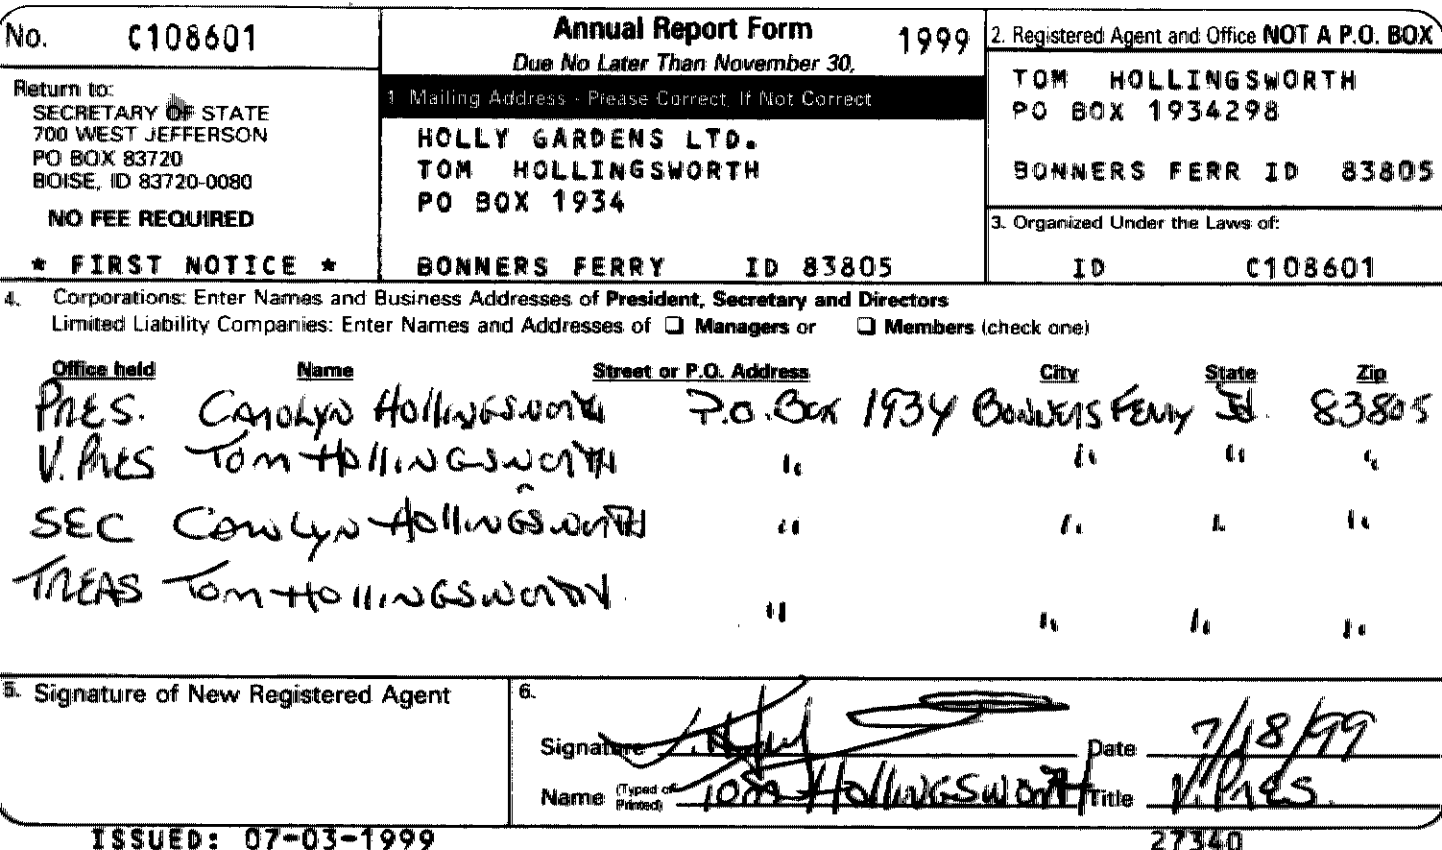 No. C108601
Return to:
SECRETARY OF STATE
700 WEST JEFFERSON
PO BOX 83720
BOISE, ID 83720-0080
NO FEE REQUIRED
* FIRST NOTICE *
Annual Report Form 1999
Due No Later Than November 30,
1. Mailing Address - Please Correct, If Not Correct
HOLLY GARDENS LTD.
TOM HOLLINGSWORTH
PO BOX 1934
BONNERS FERRY ID 83805
2. Registered Agent and Office NOT A P.O. BOX
TOM HOLLINGSWORTH
PO BOX 1934298
BONNERS FERR ID 83805
3. Organized Under the Laws of:
ID C108601
4. Corporations: Enter Names and Business Addresses of President, Secretary and Directors
Limited Liability Companies: Enter Names and Addresses of ☐ Managers or ☐ Members (check one)
Office held Name Street or P.O. Address City State Zip
PRES. CAROLYN HOLLINGSWORTH P.O. BOX 1934 BONNERS FERRY Id. 83805
V. PRES TOM HOLLINGSWORTH " " " "
SEC CAROLYN HOLLINGSWORTH " " " "
TREAS TOM HOLLINGSWORTH " " " "
5. Signature of New Registered Agent
6.
Signature Date 7/18/99
Name (Typed or Printed) TOM HOLLINGSWORTH Title V. PRES.
ISSUED: 07-03-1999 27340